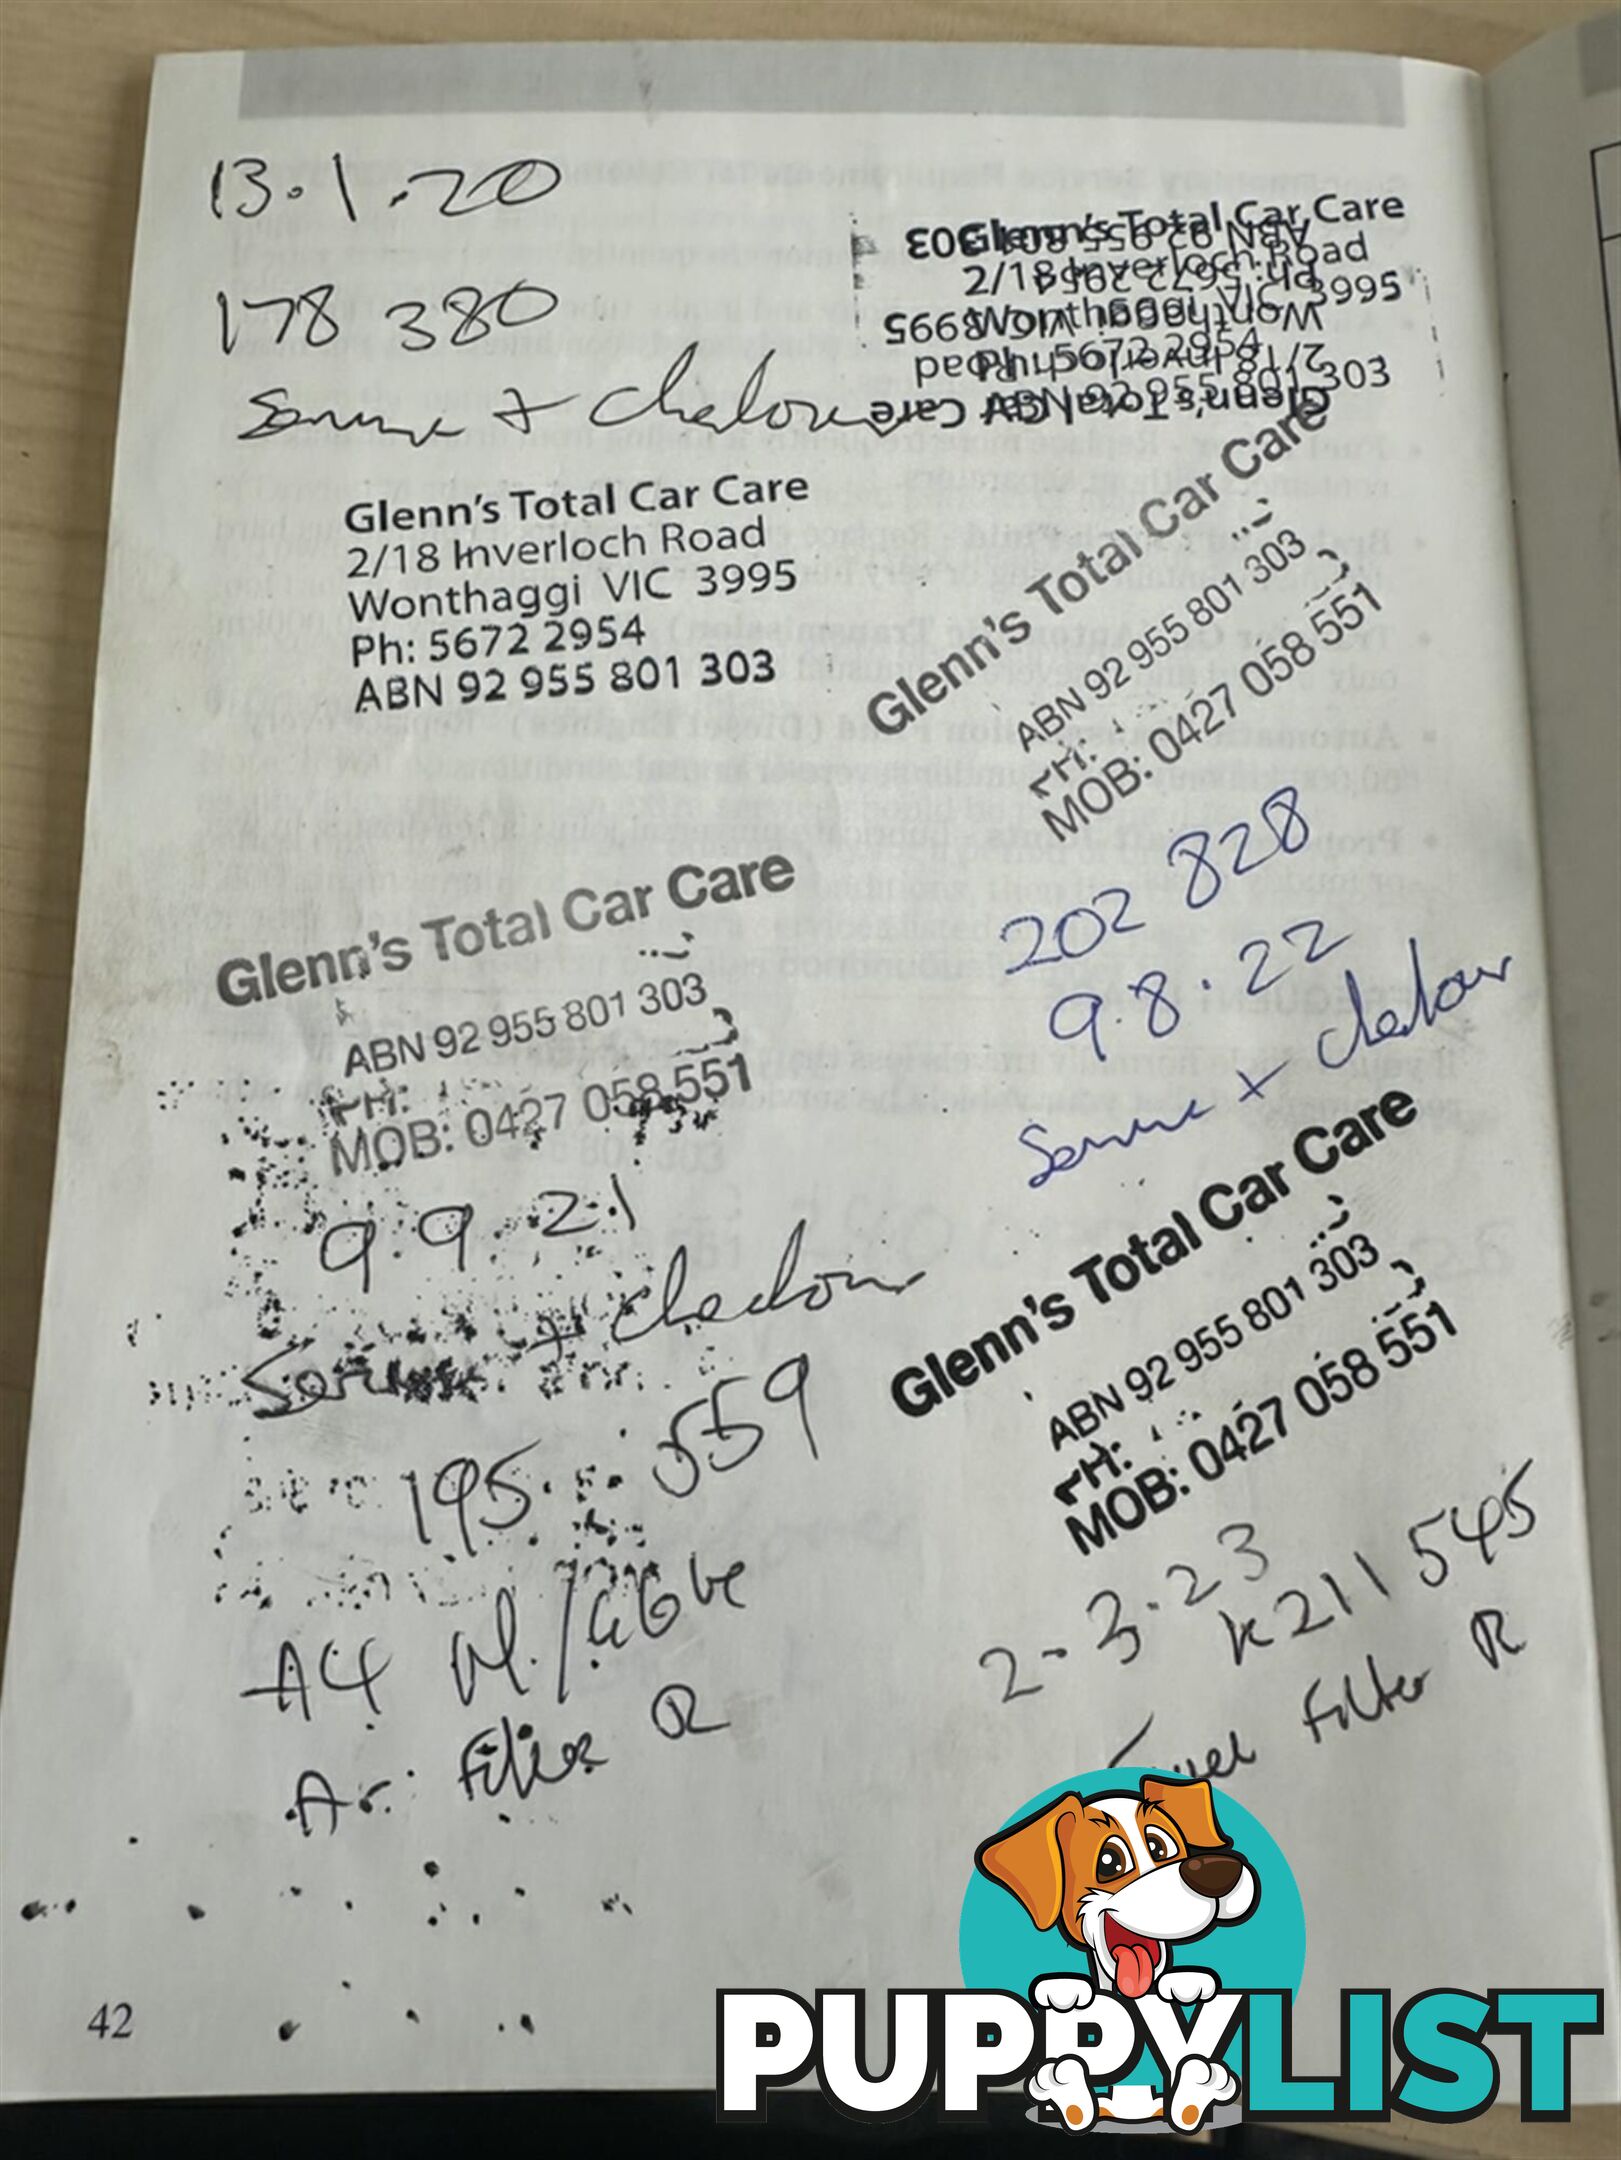 13.1.20
178 380
Service + checkover
Glenn's Total Car Care
2/18 Inverloch Road
Wonthaggi VIC 3995
Ph: 5672 2954
ABN 92 955 801 303
Glenn's Total Car Care
ABN 92 955 801 303
PH:
MOB: 0427 058 551
9.9.21
Service + checkover
195 559
A4
Air Filter R
Glenn's Total Car Care
2/18 Inverloch Road
Wonthaggi VIC 3995
Ph: 5672 2954
ABN 92 955 801 303
Glenn's Total Car Care
2/18 Inverloch Road
Wonthaggi VIC 3995
Ph: 5672 2954
ABN 92 955 801 303
Glenn's Total Car Care
ABN 92 955 801 303
PH:
MOB: 0427 058 551
202 828
9.8.22
Service + checkover
Glenn's Total Car Care
ABN 92 955 801 303
PH:
MOB: 0427 058 551
2-3.23
K211545
Fuel Filter R
42
PUPPYLIST